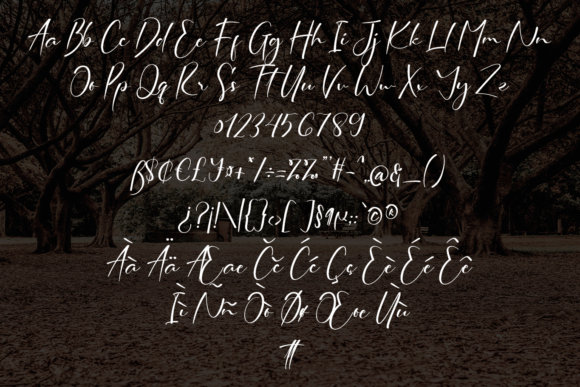 Aa Bb Cc Dd Ee Ff Gg Hh Ii Jj Kk Ll Mm Nn
Oo Pp Qq Rr Ss Tt Uu Vv Ww Xx Yy Zz
0123456789
ß$¢€£¥¤+*/÷=%‰"'#-^.,@&_()
¿?¡!\|{}‹›[]§¶µ:;`©®
Àà Ää Ææ Čč Ćć Çç Èè Éé Êê
Ìì Ññ Òò Øø Œœ Ùù
tt